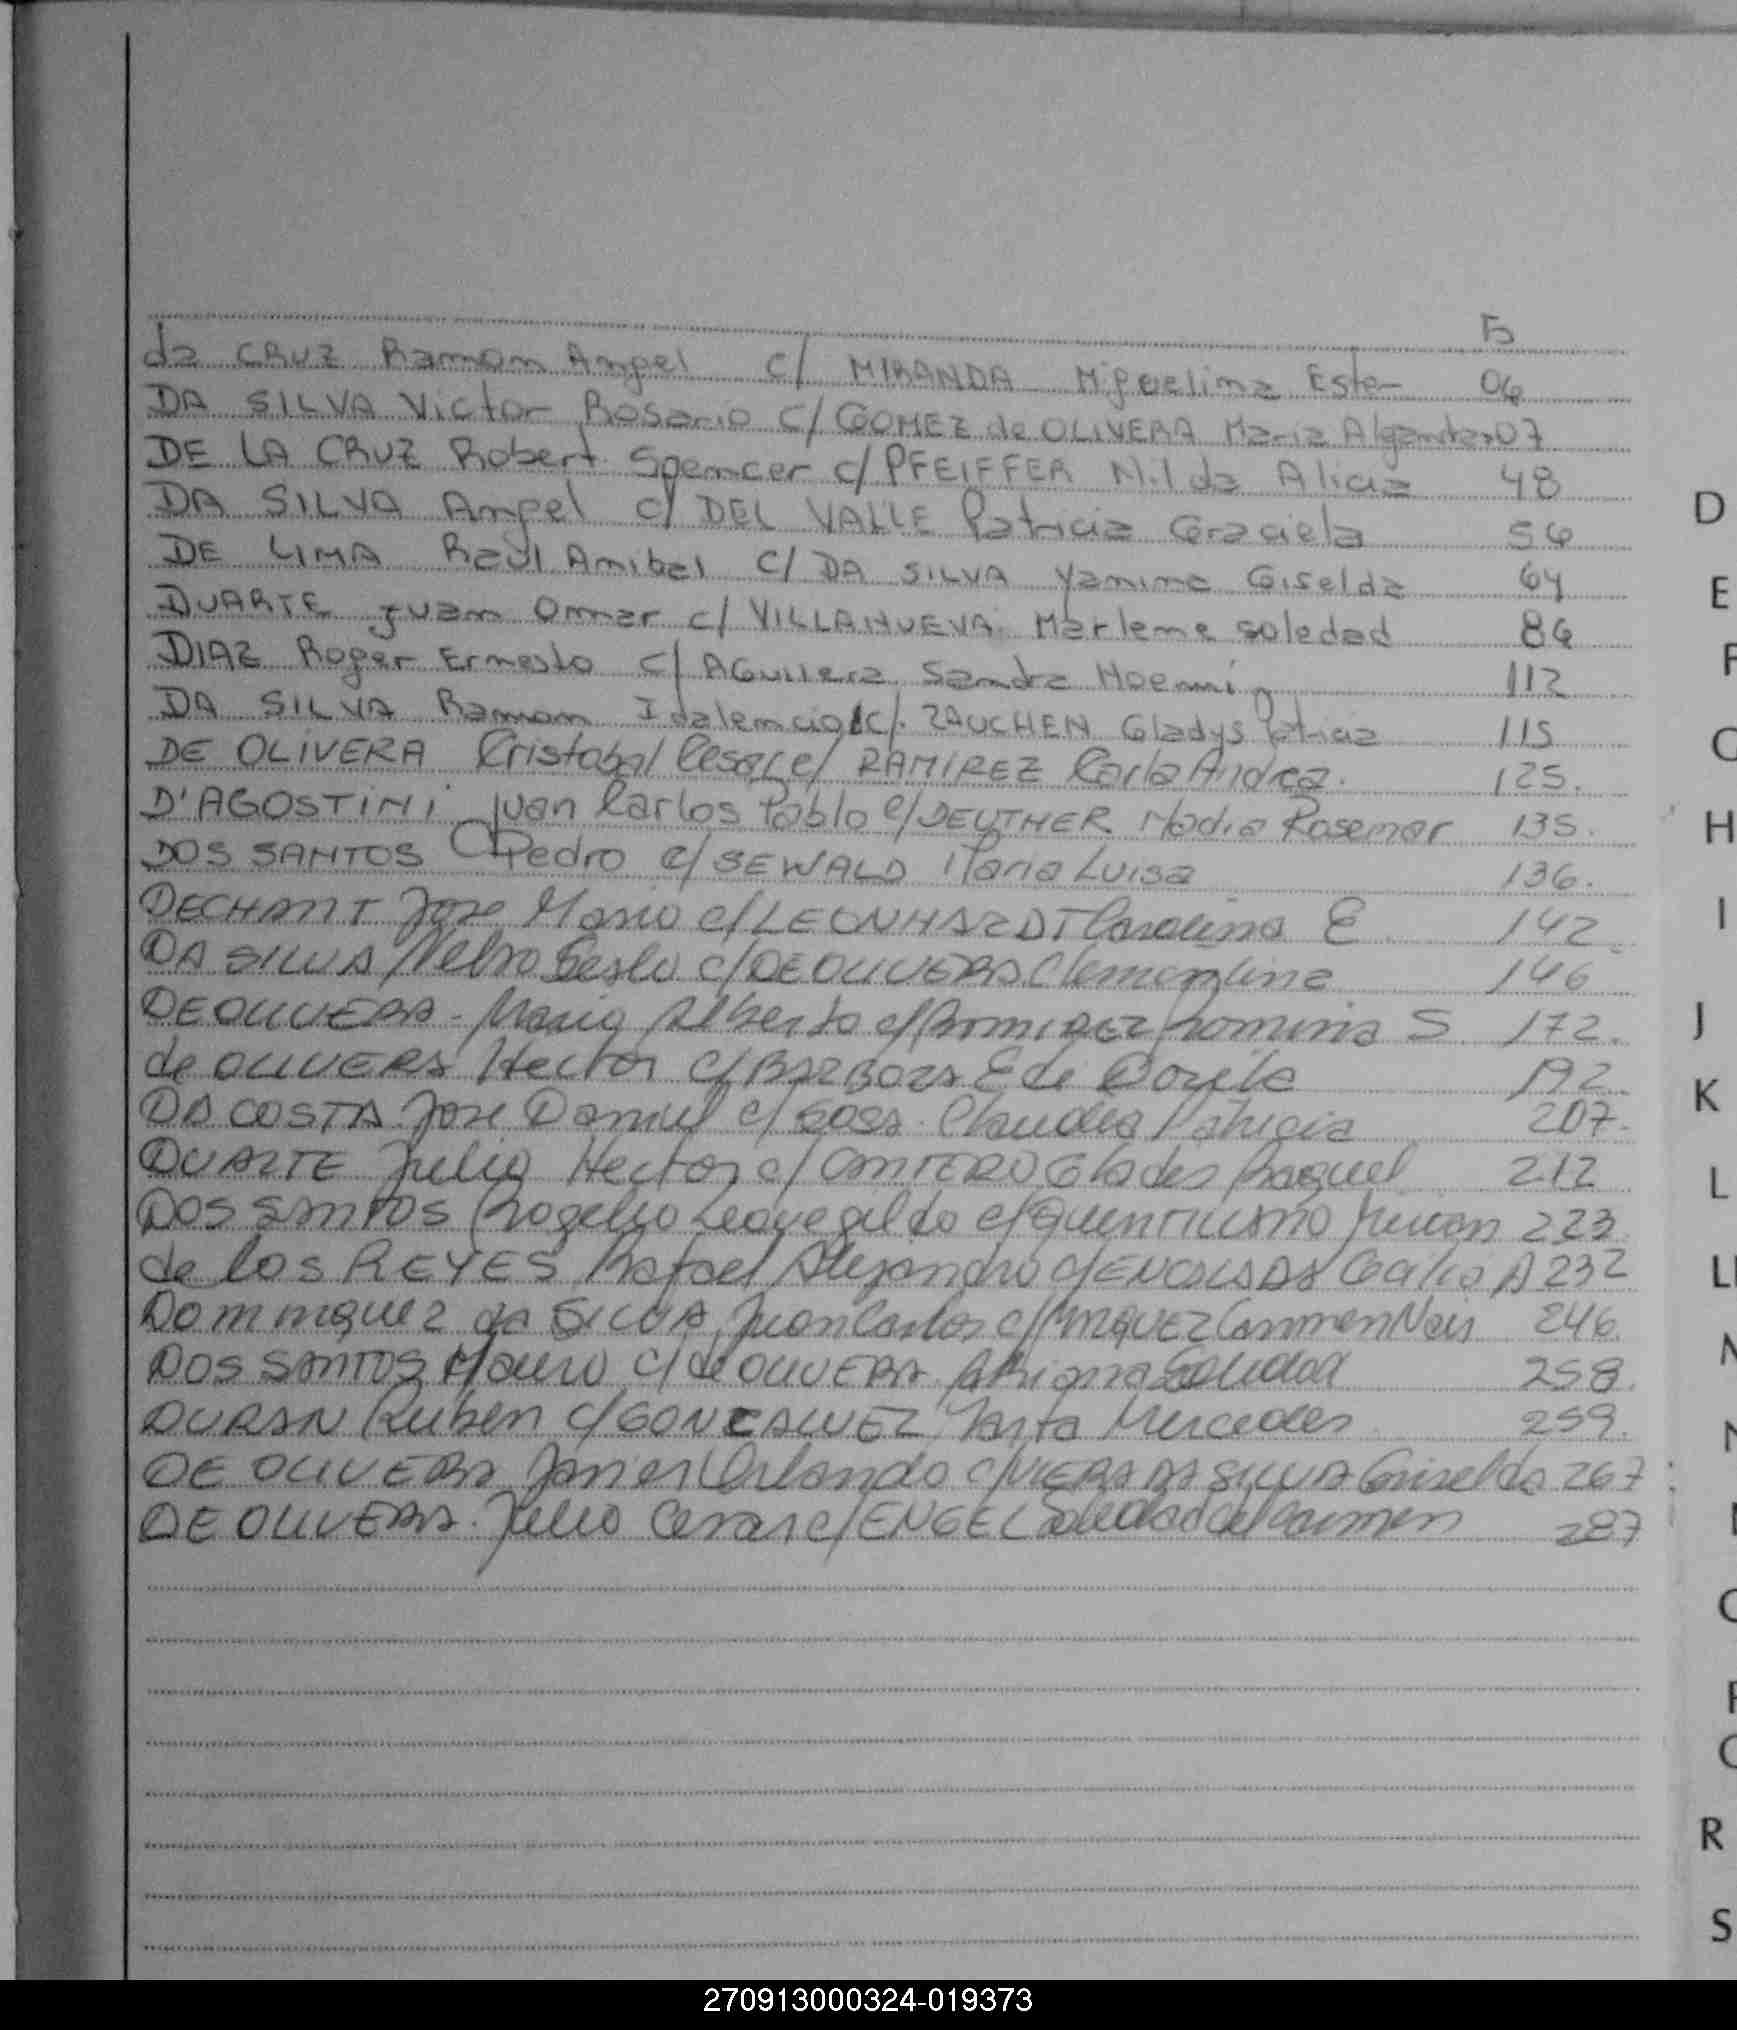 Fs
da CRUZ Ramon Angel c/ MIRANDA Miguelina Ester 06
DA SILVA Victor Rosario c/ GOMEZ de OLIVERA Maria 07
DE LA CRUZ Robert Spencer c/ PFEIFFER Nilda Alicia 48
DA SILVA Angel c/ DEL VALLE Patricia Graciela 56
DE LIMA Raul Anibal c/ DA SILVA Yanina Giselda 64
DUARTE Juan Omar c/ VILLANUEVA Marlene Soledad 86
DIAZ Roger Ernesto c/ AGuilera Sandra Noemi 112
DA SILVA Ramon Idalencio c/. ZAUCHEN Gladys Patricia 115
DE OLIVERA Cristobal Cesar c/ RAMIREZ Carla Andrea. 125.
D'AGOSTINI Juan Carlos Pablo c/ DEUTHER Nadia Rosemar 135.
DOS SANTOS Pedro c/ SEWALD Maria Luisa 136.
DECHANT Jose Mario c/ LEONHARDT Carolina E. 142
DA SILVA c/ DE OLIVERA Clementina 146
DE OLIVERA - Mario Alberto c/ RAMIREZ Romina S 172.
de OLIVERA Hector c/ BARBOZA 192
DA COSTA Jose Daniel c/ SOSA Claudia Patricia 207.
DUARTE Julio Hector c/ CANTERO Glades Raquel 212
DOS SANTOS Rogelio c/ 223
de los REYES Rafael Alejandro c/ Cecilia A 232
Dominguez da SILVA, Juan Carlos c/ Carmen 246
DOS SANTOS Mauro c/ de OLIVERA 258.
DURAN Ruben c/ GONZALVEZ Mercedes 259.
DE OLIVERA Javier Orlando c/ VIERA DA SILVA Griselda 267
DE OLIVERA. Julio Cesar c/ ENGEL Soledad del Carmen 287
D
E
F
G
H
I
J
K
L
LL
M
N
R
S
270913000324-019373